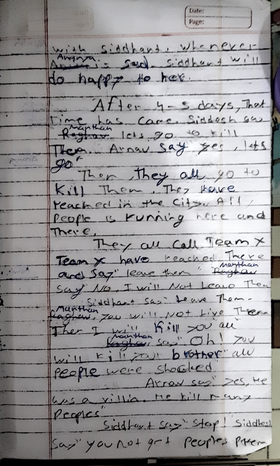 Date:
Page:
with Siddhant, whenever
Ananya
is sad. siddhant will
do happy to her.
After 4-5 days, That
Time has came. Siddesh saw
Manthan
Raghav lets go to kill
Them. Arnav say yes, lets
go"
Then, They all go to
Kill Them, They Have
reached in the City. All
People is running here and
There,
They all Call Team X
Team X have reached There
and say" leave them" Manthan
Raghav
Say No, I will Not Leave Them
Siddhant say" Leave Them-
Manthan
Raghav, you will Not Live Them
Then I will Kill you all
Manthan
Raghav say" Oh! you
will Kill your brother" all
People were shocked
Arnav say" yes, He
was a villia. He kill many
Peoples"
Siddhant say" Stop! Siddesh
say" you not get Peoples